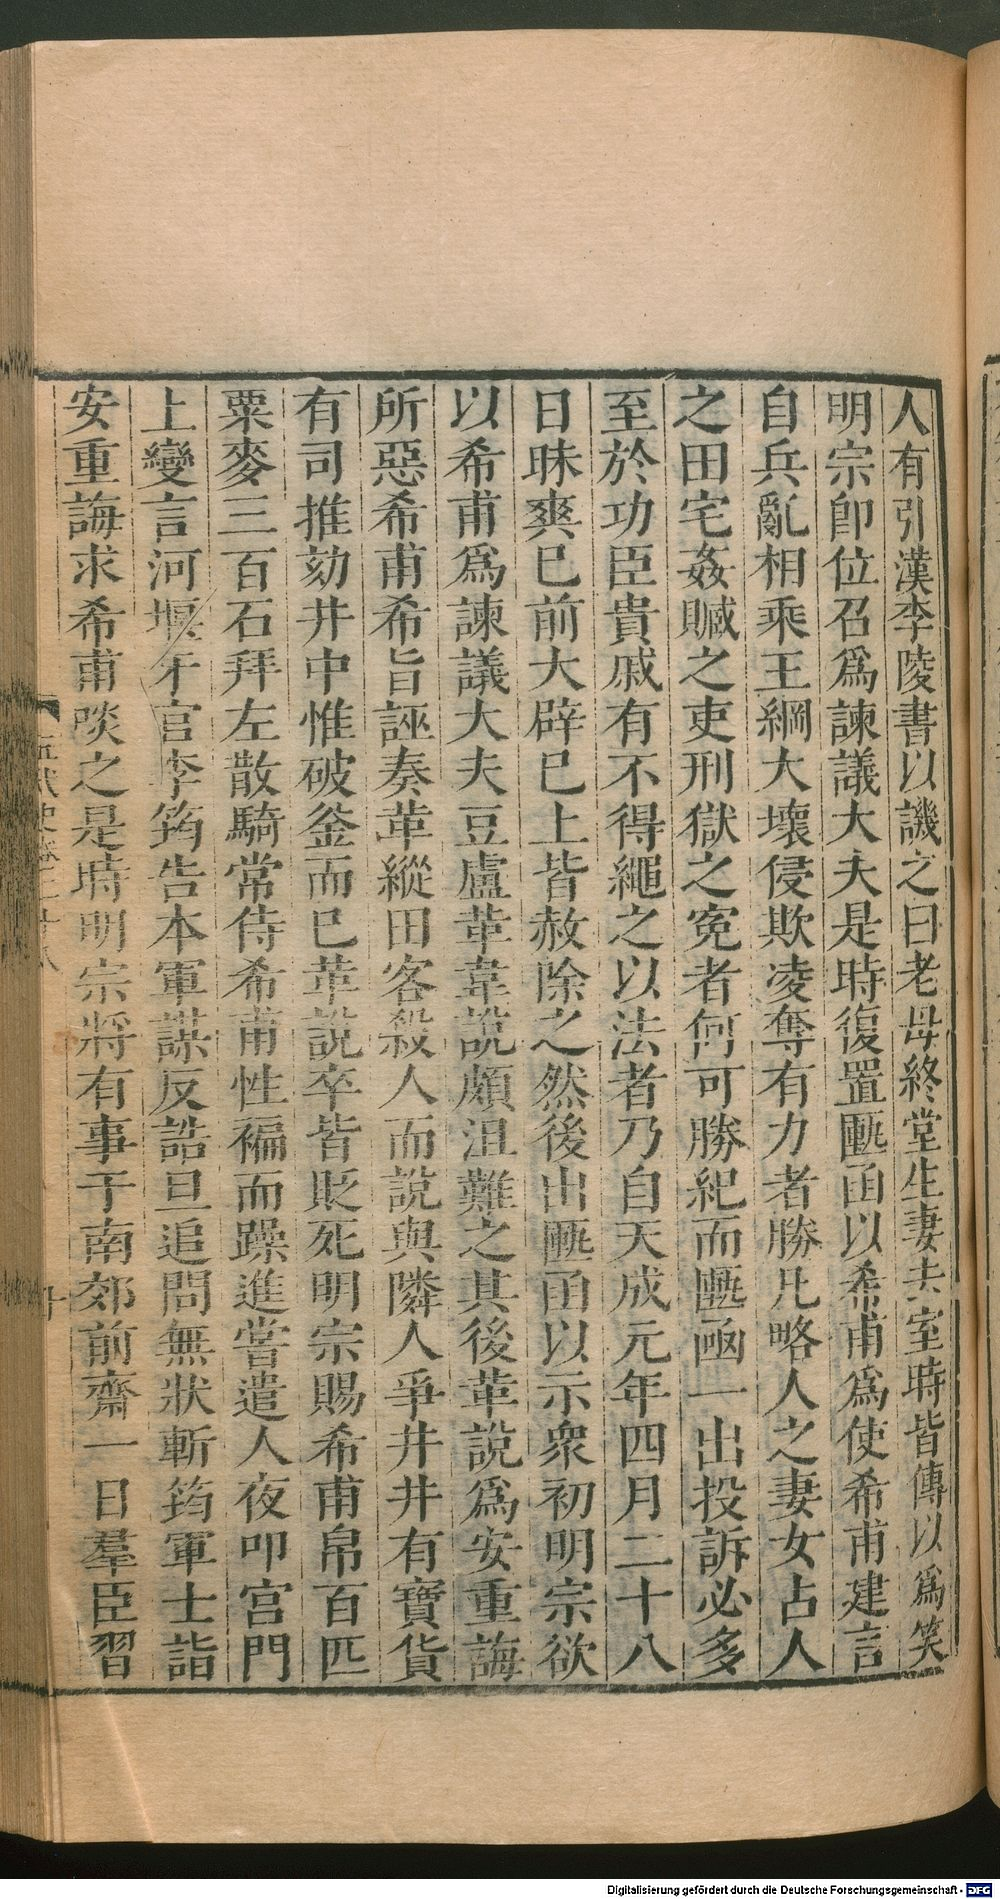 人有引漢李陵書以譏之曰老母終堂生妻去室時皆傳以爲笑
明宗卽位召爲諫議大夫是時復置匭函以希甫爲使希甫建言
自兵亂相乘王綱大壞侵欺凌奪有力者勝凡略人之妻女占人
之田宅姦贓之吏刑獄之冤者何可勝紀而匭凾一出投訴必多
至於功臣貴戚有不得繩之以法者乃自天成元年四月二十八
日昧爽已前大辟已上皆赦除之然後出匭函以示衆初明宗欲
以希甫爲諫議大夫豆盧革韋說頗沮難之其後革說爲安重誨
所惡希甫希旨誣奏革縱田客殺人而說與隣人爭井井有寶貨
有司推劾井中惟破釜而已革說卒皆貶死明宗賜希甫帛百匹
粟麥三百石拜左散騎常侍希甫性褊而躁進嘗遣人夜叩宮門
上變言河堰牙官李筠告本軍謀反詰旦追問無狀斬筠軍士詣
安重誨求希甫啖之是時明宗將有事于南郊前齋一日羣臣習
五代史卷二十八
十
Digitalisierung gefördert durch die Deutsche Forschungsgemeinschaft - DFG